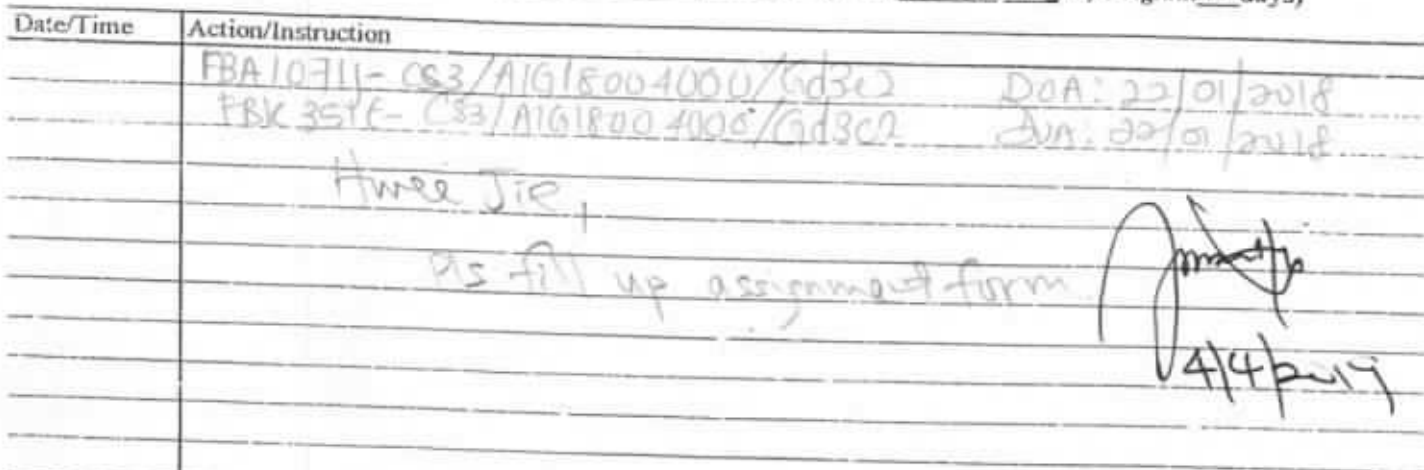 days)
Date/Time Action/Instruction
FBA1071J- CS3/AIG18004000/Gd3c2 DOA: 22/01/2018
FBK351E- CS3/AIG18004000/Gd3c2 DOA: 22/01/2018
Hwee Jie,
Pls fill up assignment form
4/4/2019